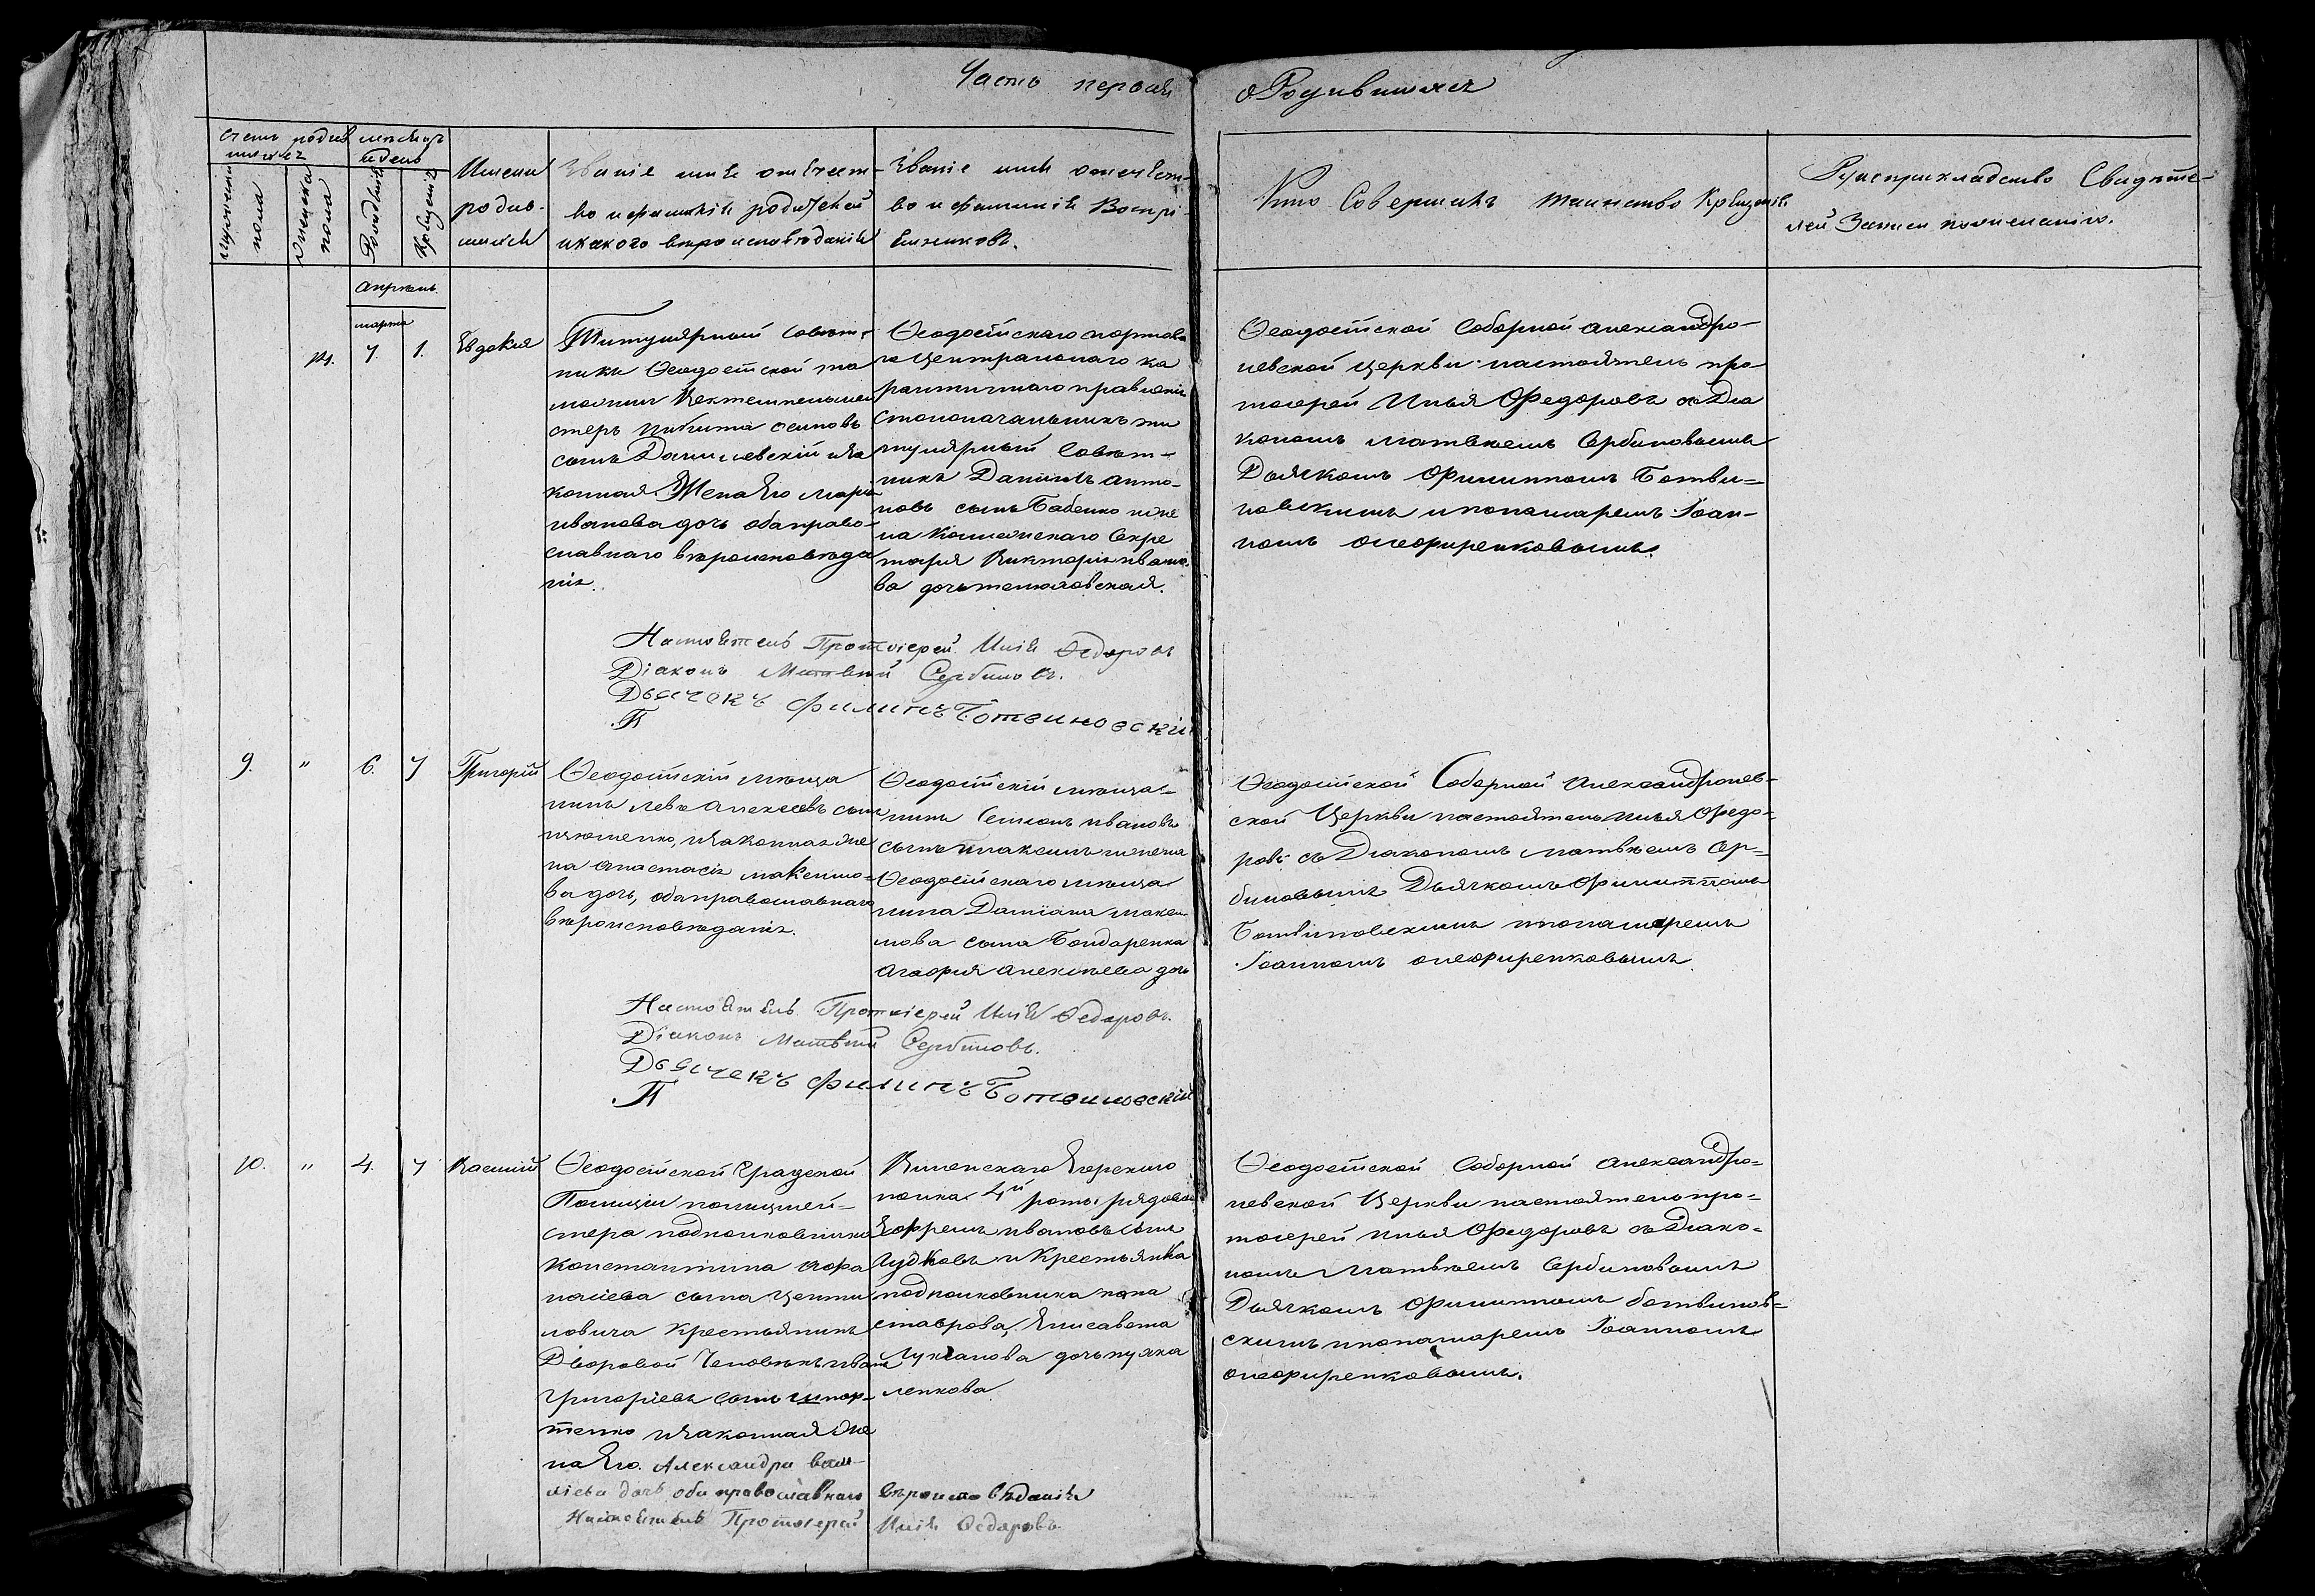 Часть первая о Родившихся
Счетъ родив
шихся
мѣсяцъ
и день
мужеска
пола
женска
пола
Рождения
Крещенія
Имена
родив-
шихся
Званіе имя отечест-
во и фамилія родителей
и какого вѣроисповѣданія
Званіе имя отечест-
во и фамилія Воспрі-
емниковъ.
Кто Совершалъ таинство Крещенія
Рукоприкладство Свидѣте-
лей Записи по желанію.
апрѣль.
марта
7. 1.
Евдокия
Титулярный Совѣт-
никъ Ѳеодосійской та
можни
стеръ Никита осиповъ
сынъ Данилевскій и за
конная Жена Его Марія
иванова дочь оба право-
славнаго вѣроисповѣда
нія.
Ѳеодосійскаго портова
го Центральнаго ка
рантиннаго правленія
столоначальникъ ти
тулярный Совѣт-
никъ Даниилъ анто-
новъ сынъ Бабенко и же
на Коллежскаго Секре
таря Викторія ивано
ва дочь
Ѳеодосійской Соборной александро-
невской церкви настоятель про
тоіерей Илья Ѳедоровъ съ Диа
кономъ матвѣемъ Сербиновымъ
Дьячкомъ Филиппомъ Ботви=
новскимъ и пономаремъ Іоан-
номъ олефиренковымъ.
Настоятель Протоіерей Илія Ѳедоровъ
Діаконъ Матвѣй Сербиновъ.
Дьячекъ Филипъ Ботвиновскій
П
9. " 6. 7
Григорій
Ѳеодосійскій мѣща
нинъ левъ алексѣевъ сынъ
и законная же
на анастасія максимо-
ва дочь, оба православнаго
вѣроисповѣданія.
Ѳеодосійскій мѣща-
нинъ Семіонъ ивановъ
сынъ и жена
Ѳеодосійскаго мѣща
нина Даміана макси
мова сына Бондаренка
агафия алексѣева дочь
Ѳеодосійской Соборной александронев-
ской Церкви настоятель илья Ѳедо-
ровъ съ Диакономъ матвѣемъ Сер-
биновымъ Дьячкомъ Филиппомъ
Ботвиновскимъ и пономаремъ
Іоанномъ олефиренковымъ
Настоятель Протоіерей Илія Ѳедоровъ.
Діаконъ Матвѣй Сербиновъ.
Дьячекъ Филипъ Ботвиновскій
П
10. " 4. 7
Василій
Ѳеодосійской Градской
Полиции полицмей-
стера подполковника
Константина Афа
насіева сына
ловича крестьянинъ
Дворовой Человѣкъ иванъ
григоріевъ сынъ
тенко и законная же
на Его Александра васи-
ліева дочь оба православнаго вѣроисповѣданія
Виленскаго Егерскаго
полка 4й роты рядовой
Ефремъ ивановъ сынъ
Гудковъ и Крестьянка
подполковника папа
ставрова, Елисавета
Лукіанова дочь
ленкова
Ѳеодосійской Соборной александро-
невской Церкви настоятель про-
тоіерей илья Ѳедоровъ съ Диако-
номъ Матвѣемъ Сербиновымъ
Дьячкомъ Филиппомъ ботвинов-
скимъ и пономаремъ Іоанномъ
олефиренковымъ.
Настоятель Протоіерей Илія Ѳедоровъ